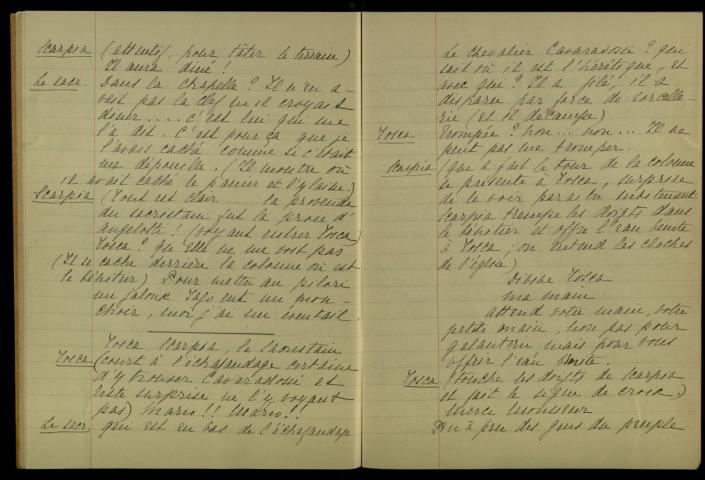 Scarpia (attentif, pour tâter le terrain)
Il aura diné!
Le sacr. Dans la chapelle? Il n'en a-
vait pas la clef ni il croyait
diner.... c'est lui qui me
l'a dit. C'est pour ça que je
l'avais caché comme si c'était
ma dépouille. (Il montre où
il avait caché le panier et l'église.)
Scarpia (Tout est clair.... la provende
du sacristain fut la proie d'
Angelotti! (voyant entrer Tosca)
Tosca? qu'elle ne me voit pas
(Il se cache derrière la colonne où est
le bénitier) Pour mettre au pilori
un jaloux Iago eut un mou-
choir, moi j'ai un éventail.
Tosca, Scarpia, le Sacristain
Tosca (court à l'échafaudage certaine
d'y trouver Cavaradossi et
reste surprise ne l'y voyant
pas) Mario!! Mario!!
Le sacr. qui est en bas de l'échafaudage
Le chevalier Cavaradossi? qui
sait où il est l'hérétique, et
avec qui? Il a filé, il a
disparu par force de sorcelle-
rie (et il décampe)
Tosca Trompée? non... non... Il ne
peut pas me tromper.
Scarpia (qui a fait le tour de la colonne
se présente à Tosca, surprise
de le voir paraître subitement
Scarpia trempe les doigts dans
le bénitier et offre l'eau bénite
à Tosca; on entend les cloches
de l'église)
Divine Tosca
ma main
attend votre main, votre
petite main, non pas pour
galanterie mais pour vous
offrir l'eau bénite.
Tosca (touche les doigts de Scarpia
et fait le signe de croix)
Merci Monsieur
Peu à peu des gens du peuple